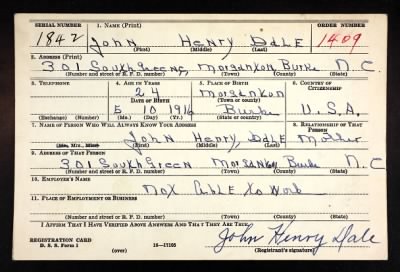 SERIAL NUMBER 1. NAME (Print) ORDER NUMBER
1842 John Henry Dale 1409
(First) (Middle) (Last)
2. ADDRESS (Print)
301 South Greene, Morganton, Burke N.C.
(Number and street or R. F. D. number) (Town) (County) (State)
3. TELEPHONE 4. AGE IN YEARS 5. PLACE OF BIRTH 6. COUNTRY OF CITIZENSHIP
24 Morganton
DATE OF BIRTH (Town or county)
5 10 1916 Burke U.S.A.
(Exchange) (Number) (Mo.) (Day) (Yr.) (State or country)
7. NAME OF PERSON WHO WILL ALWAYS KNOW YOUR ADDRESS 8. RELATIONSHIP OF THAT PERSON
John Henry, Dale Mother
(Mr., Mrs., Miss) (First) (Middle) (Last)
9. ADDRESS OF THAT PERSON
301 South Green Morganton Burke N.C
(Number and street or R. F. D. number) (Town) (County) (State)
10. EMPLOYER'S NAME
Not able to work
11. PLACE OF EMPLOYMENT OR BUSINESS
(Number and street or R. F. D. number) (Town) (County) (State)
I AFFIRM THAT I HAVE VERIFIED ABOVE ANSWERS AND THAT THEY ARE TRUE.
John Henry Dale
REGISTRATION CARD
D. S. S. Form 1 (over) 16—17105 (Registrant's signature)